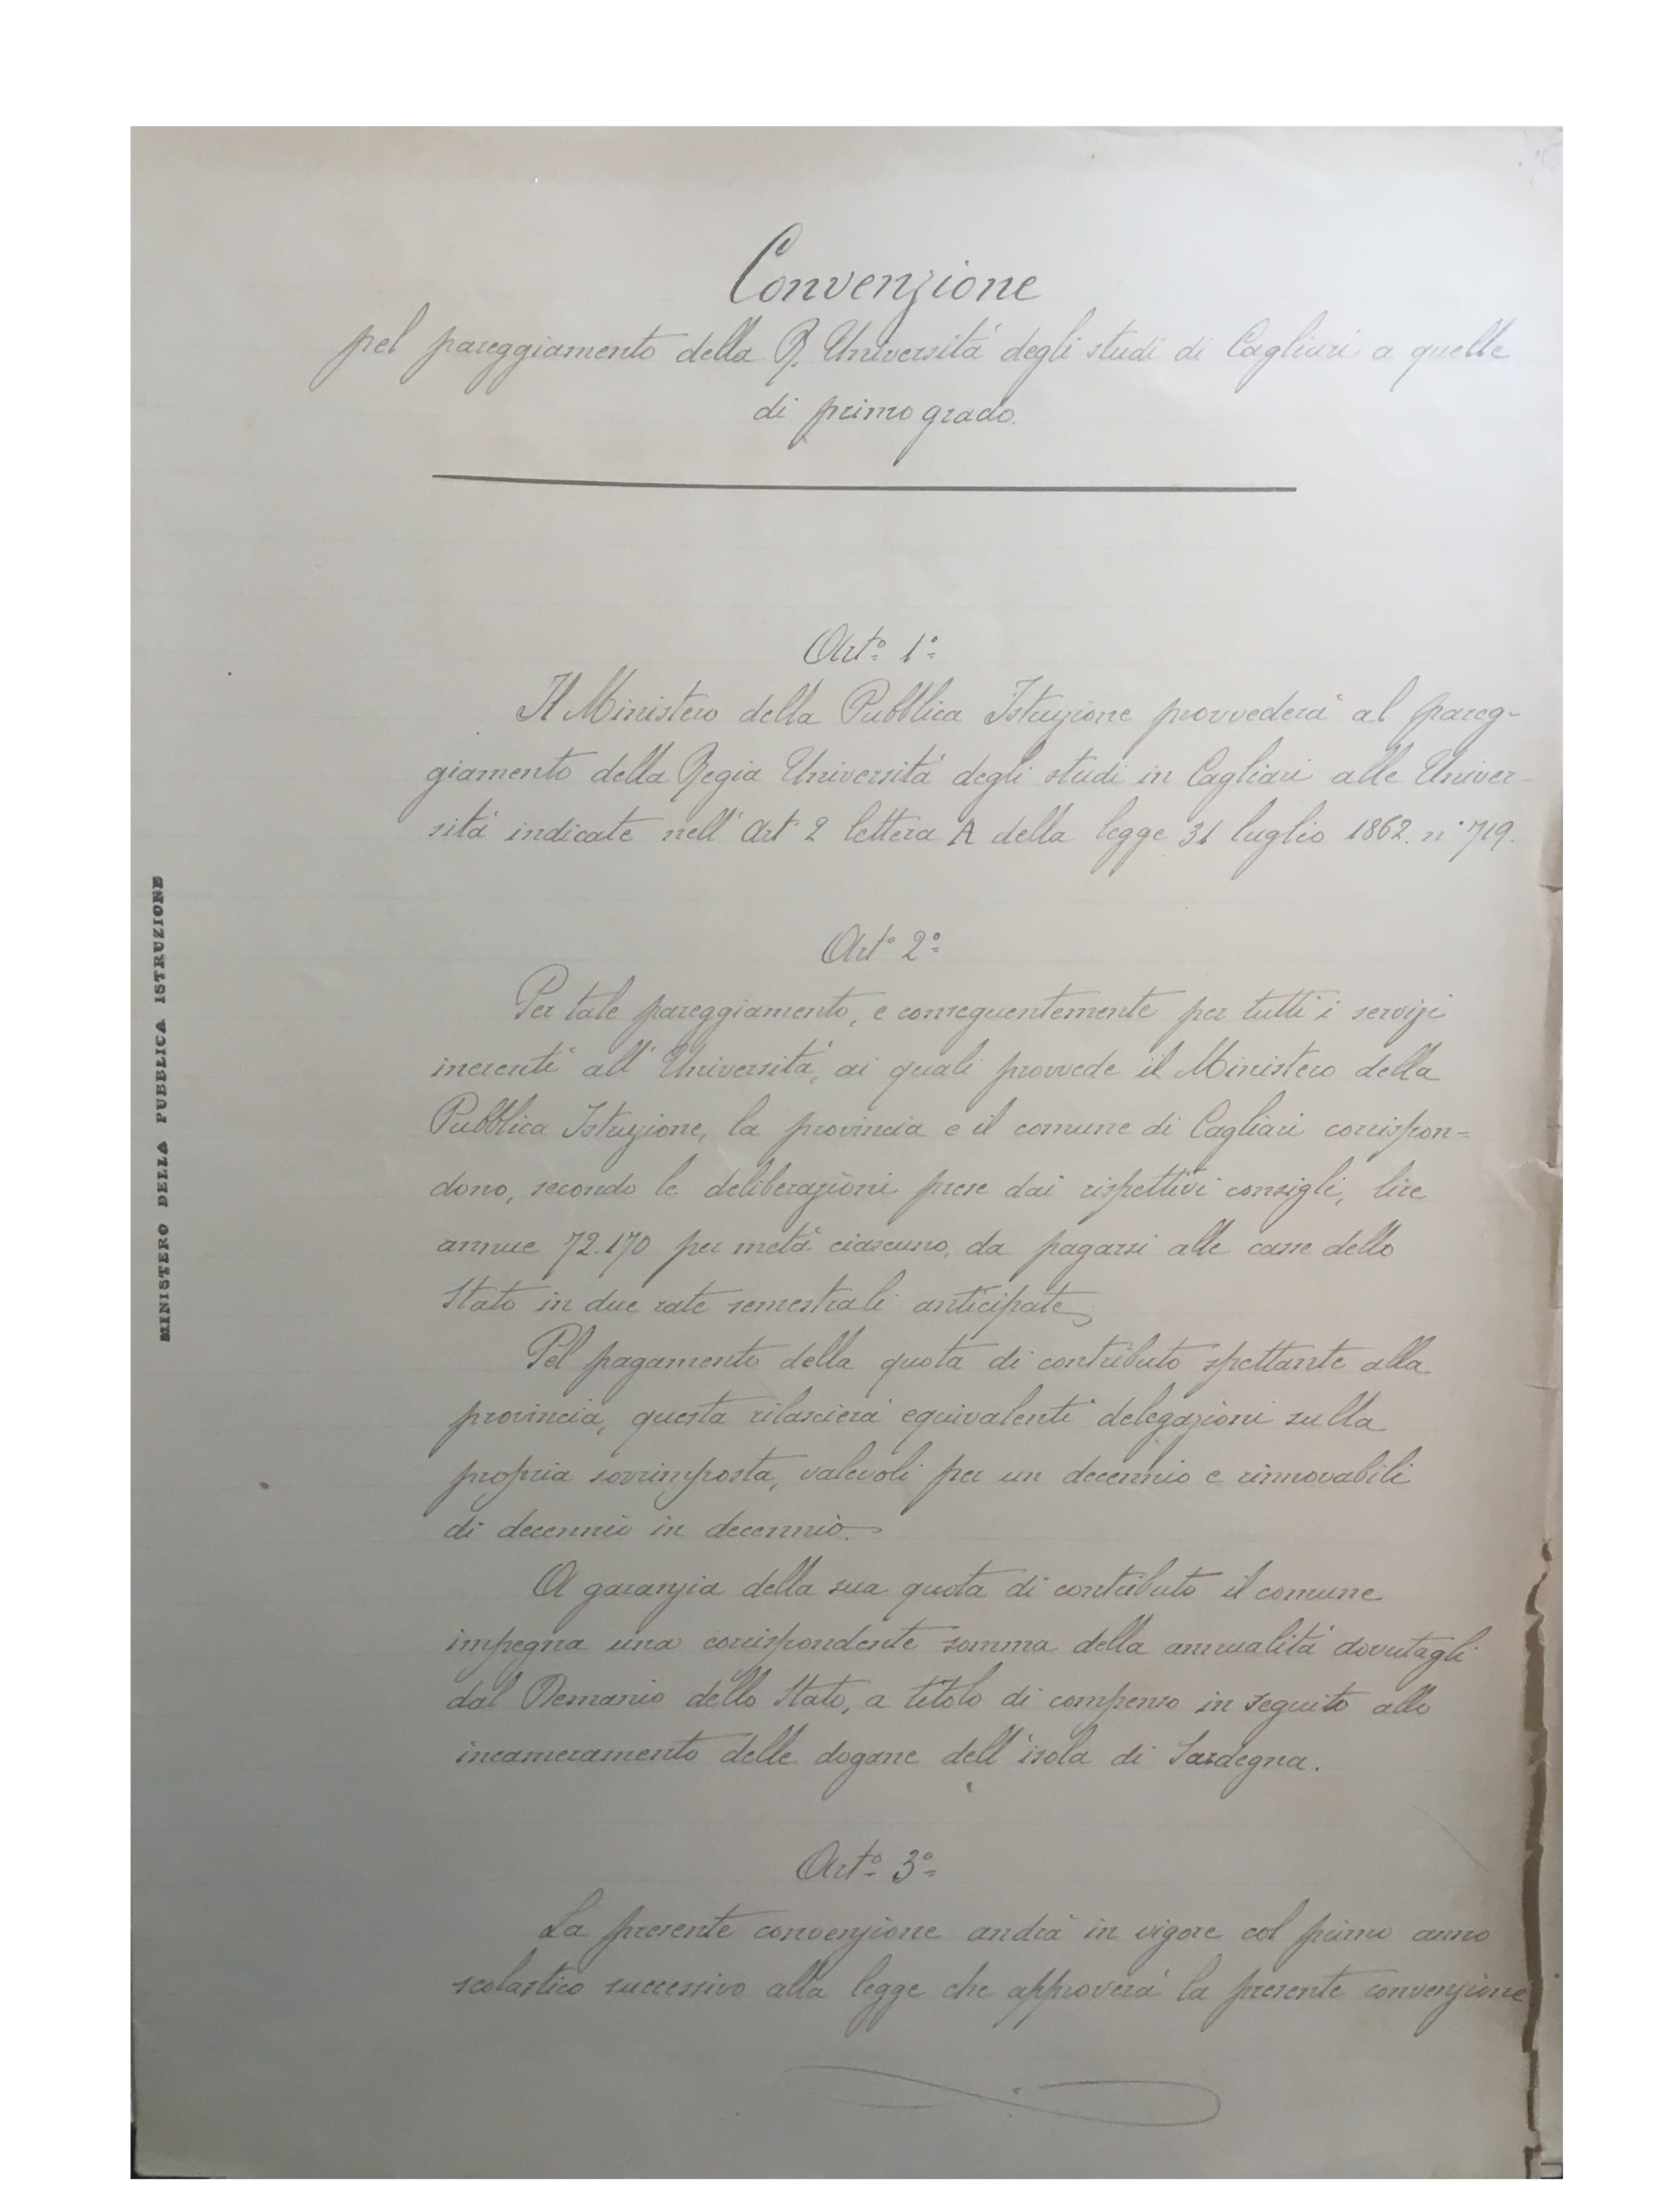 Convenzione
pel pareggiamento della R. Università degli studi di Cagliari a quelle
di primo grado.
Artº 1º
Il Ministero della Pubblica Istruzione provvederà al pareg-
giamento della Regia Università degli studi in Cagliari alle Univer-
sità indicate nell'Artº 2 lettera A della legge 31 luglio 1862. nº 719.
Artº 2º
Per tale pareggiamento, e conseguentemente per tutti i servizi
inerenti all'Università, ai quali provvede il Ministero della
Pubblica Istruzione, la provincia e il comune di Cagliari corrispon=
dono, secondo le deliberazioni prese dai rispettivi consigli, lire
annue 72.170 per metà ciascuno, da pagarsi alle casse dello
Stato in due rate semestrali anticipate
Pel pagamento della quota di contributo spettante alla
provincia, questa rilascierà equivalenti delegazioni sulla
propria sovrimposta, valevoli per un decennio e rinnovabili
di decennio in decennio.
A garanzia della sua quota di contributo il comune
impegna una corrispondente somma della annualità dovutagli
dal Demanio dello Stato, a titolo di compenso in seguito allo
incameramento delle dogane dell'isola di Sardegna.
Artº 3º
La presente convenzione andrà in vigore col primo anno
scolastico successivo alla legge che approverà la presente convenzione
MINISTERO DELLA PUBBLICA ISTRUZIONE